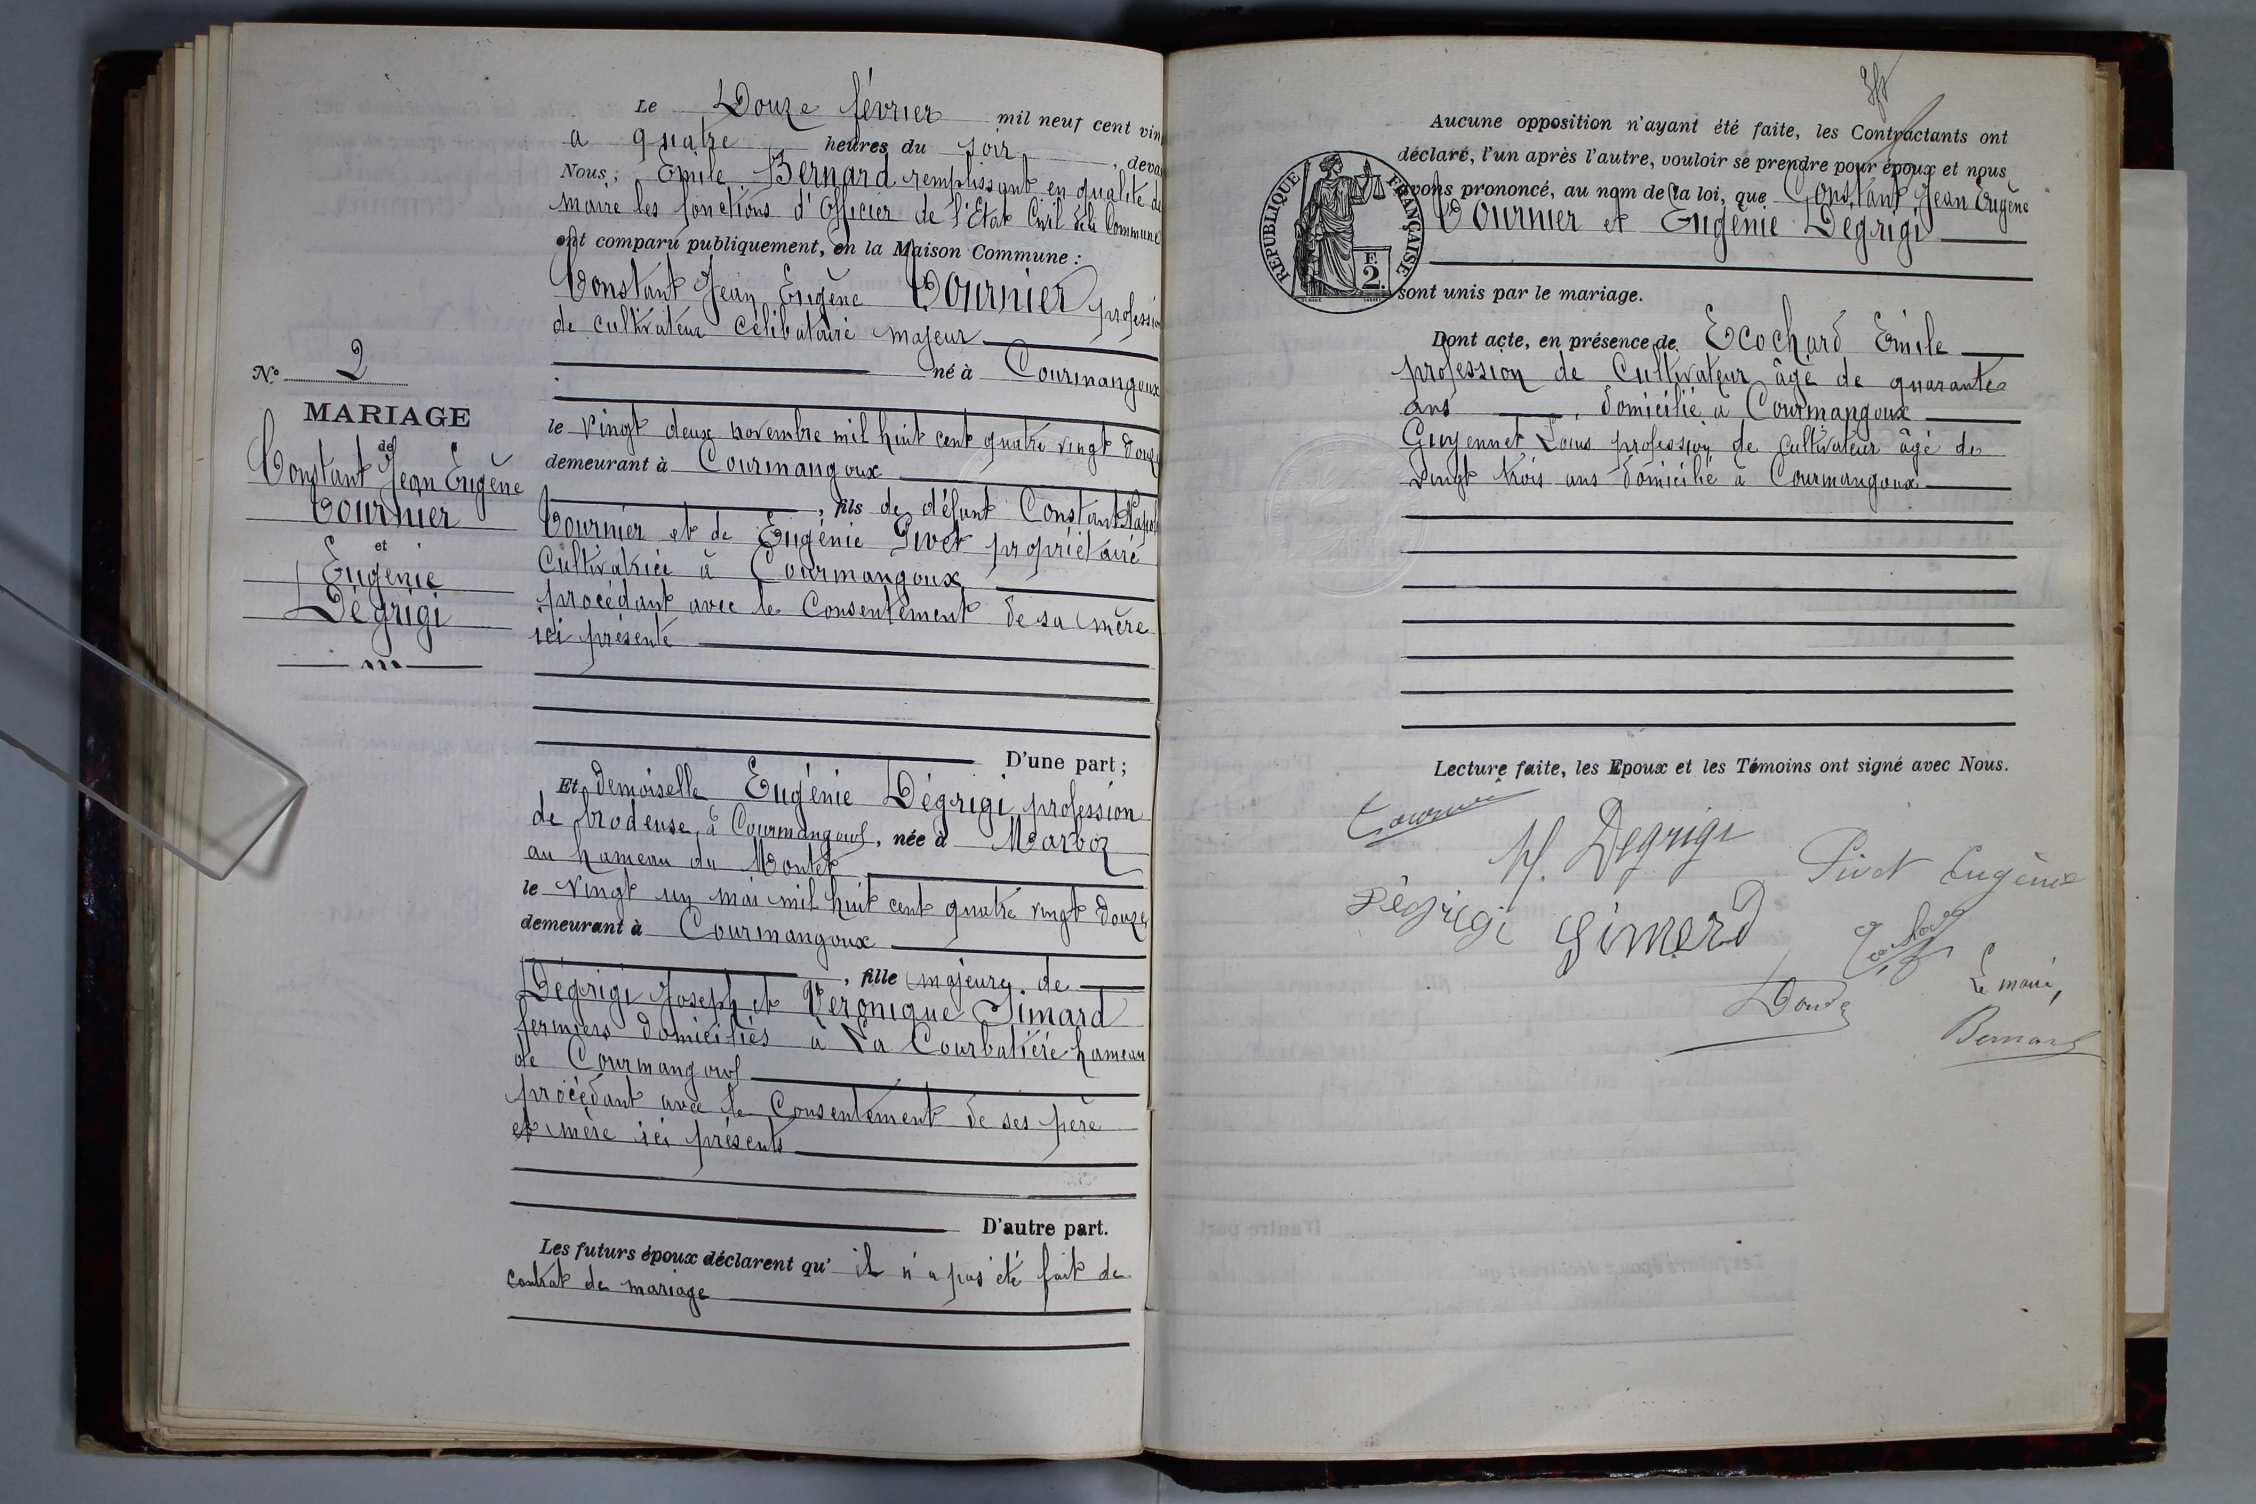 Le Douze février mil neuf cent vin
a quatre heures du soir, deva
Nous, Emile Bernard remplissant en qualité de
maire les fonctions d'Officier de l'Etat Civil de la Commune
ont comparu publiquement, en la Maison Commune :
Constant Jean Eugène Tournier professio
de cultivateur célibataire majeur
né à Courmangoux
le vingt deux novembre mil huit cent quatre vingt douze
demeurant à Courmangoux
, fils de défunt Constant
Tournier et de Eugénie Pivet propriétaire
Cultivatrice à Courmangoux
procédant avec le Consentement de sa mère
ici présente
D'une part ;
Et demoiselle Eugénie Dégrigi profession
de brodeuse à Courmangoux, née à Marboz
au hameau du Montet
le vingt un mai mil huit cent quatre vingt douze
demeurant à Courmangoux
, fille majeure de
Dégrigi Joseph et Véronique Simard
fermiers domiciliés à La Courbatière hameau
de Courmangoux
procédant avec le Consentement de ses père
et mère ici présents
D'autre part.
Les futurs époux déclarent qu' il n'a pas été fait de
contrat de mariage
N.° 2
MARIAGE
de
Constant Jean Eugène
Tournier
et
Eugénie
Dégrigi
Aucune opposition n'ayant été faite, les Contractants ont
déclaré, l'un après l'autre, vouloir se prendre pour époux et nous
avons prononcé, au nom de la loi, que Constant Jean Eugène
Tournier et Eugénie Dégrigi
RÉPUBLIQUE FRANÇAISE
F.
2.
sont unis par le mariage.
Dont acte, en présence de Ecochard Emile
profession de Cultivateur âgé de quarante
ans, domicilié à Courmangoux
Guyennet Louis profession de cultivateur âgé de
vingt trois ans domicilié à Courmangoux
Lecture faite, les Epoux et les Témoins ont signé avec Nous.
Tournier
M. Degrigi
Pivet Eugénie
Dégrigi
Simard
Le maire,
Bernard